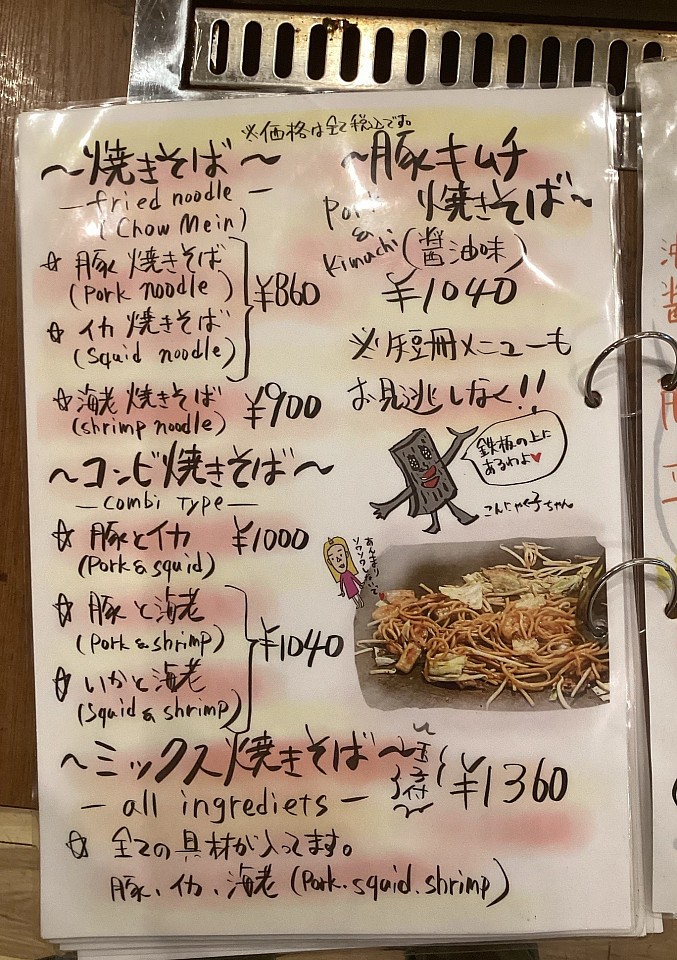 ※価格は全て税込です。
〜焼きそば〜
—fried noodle—
(Chow Mein)
☆豚焼きそば
(Pork noodle)
☆イカ焼きそば
(Squid noodle)
¥860
☆海老焼きそば ¥900
(shrimp noodle)
〜コンビ焼きそば〜
—combi Type—
☆豚とイカ ¥1000
(Pork & squid)
☆豚と海老
(Pork & shrimp)
☆いかと海老
(Squid & shrimp)
¥1040
〜豚キムチ
焼きそば〜
Pork
&
Kimuchi
(醤油味)
¥1040
※短冊メニューも
お見逃しなく!!
鉄板の上に
あるわよ♥
こんにゃく子ちゃん
あんまり
ソワソワしないで
〜ミックス焼きそば〜
玉子付
¥1360
—all ingrediets—
☆全ての具材が入ってます。
豚、イカ、海老 (Pork.squid.shrimp)